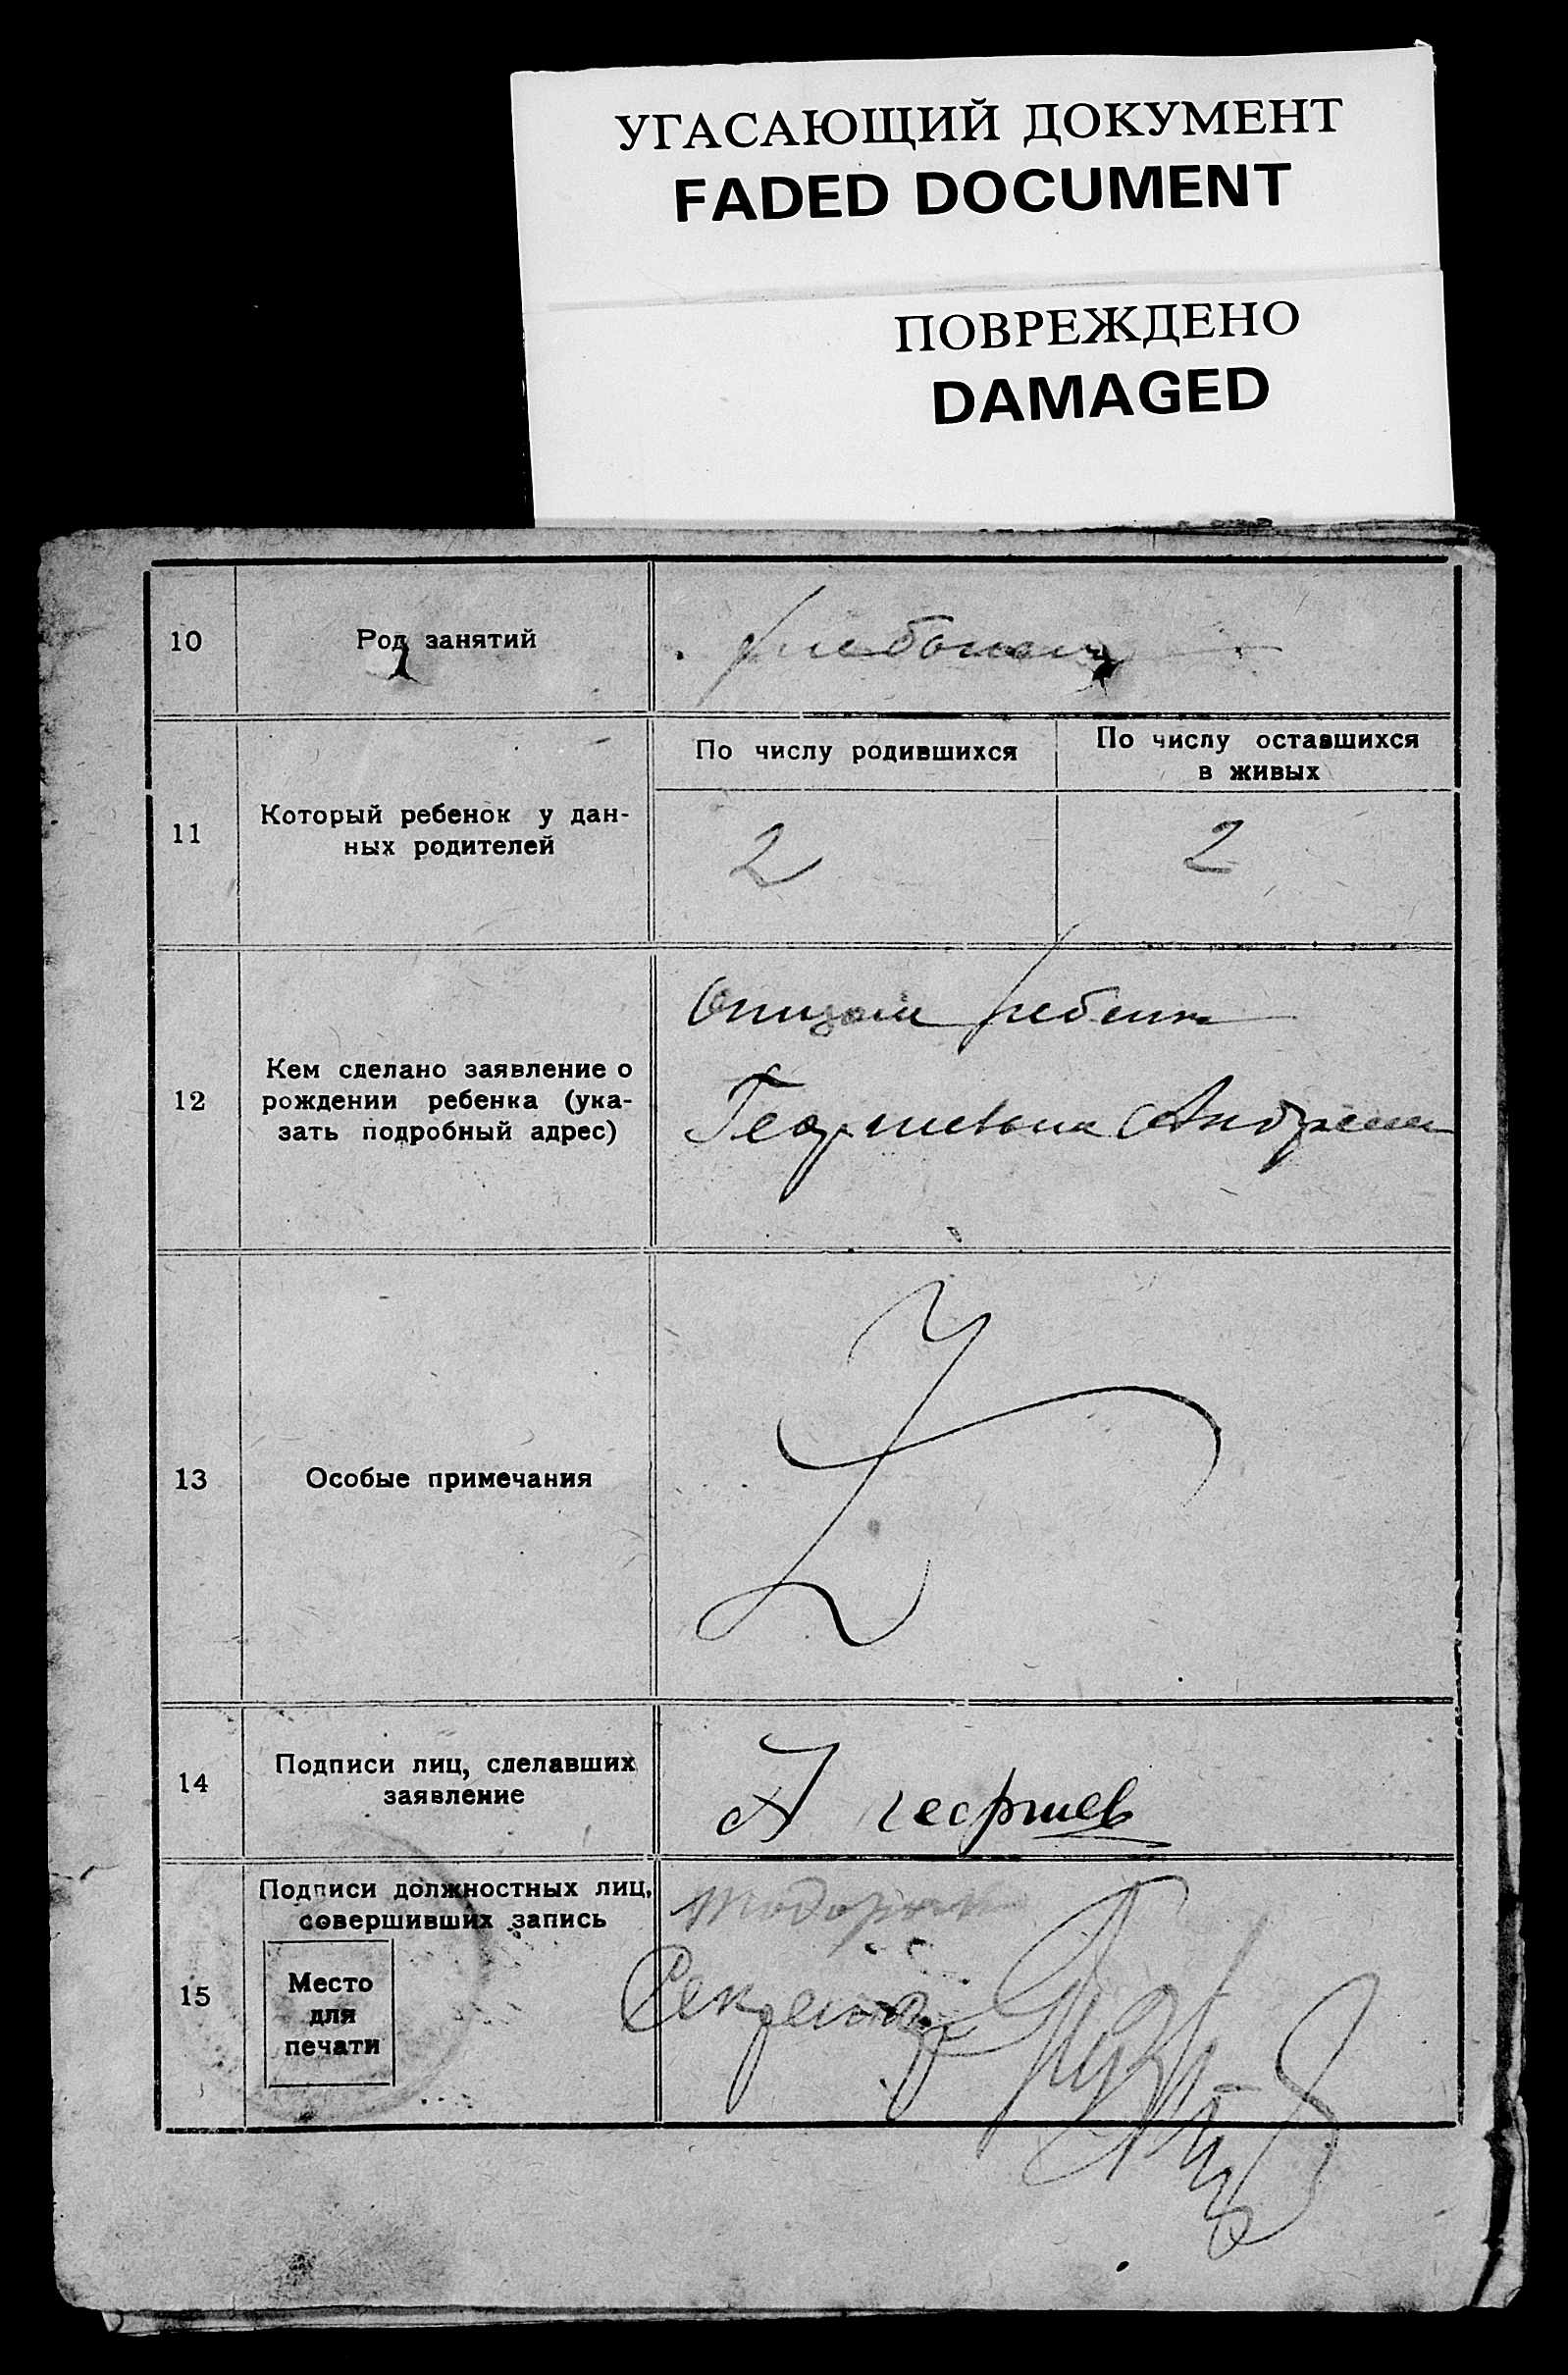 УГАСАЮЩИЙ ДОКУМЕНТ
FADED DOCUMENT
ПОВРЕЖДЕНО
DAMAGED
10
Род занятий
11
Который ребенок у дан-
ных родителей
По числу родившихся
По числу оставшихся
в живых
2
2
12
Кем сделано заявление о
рождении ребенка (ука-
зать подробный адрес)
Отцом ребенка
Георгиевым Андреем
13
Особые примечания
14
Подписи лиц, сделавших
заявление
А георгиев
15
Подписи должностных лиц,
совершивших запись
Место
для
печати
Секретар